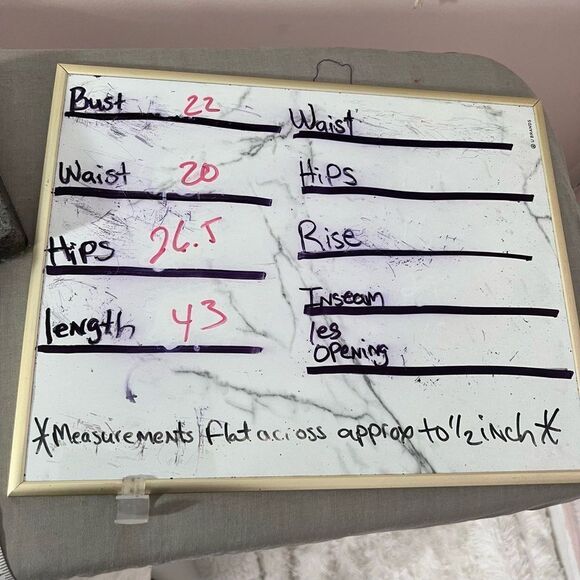 Bust 22
Waist 20
Hips 26.5
length 43
Waist
Hips
Rise
Inseam
leg
opening
*Measurements flat across approx to 1/2 inch*
U BRANDS